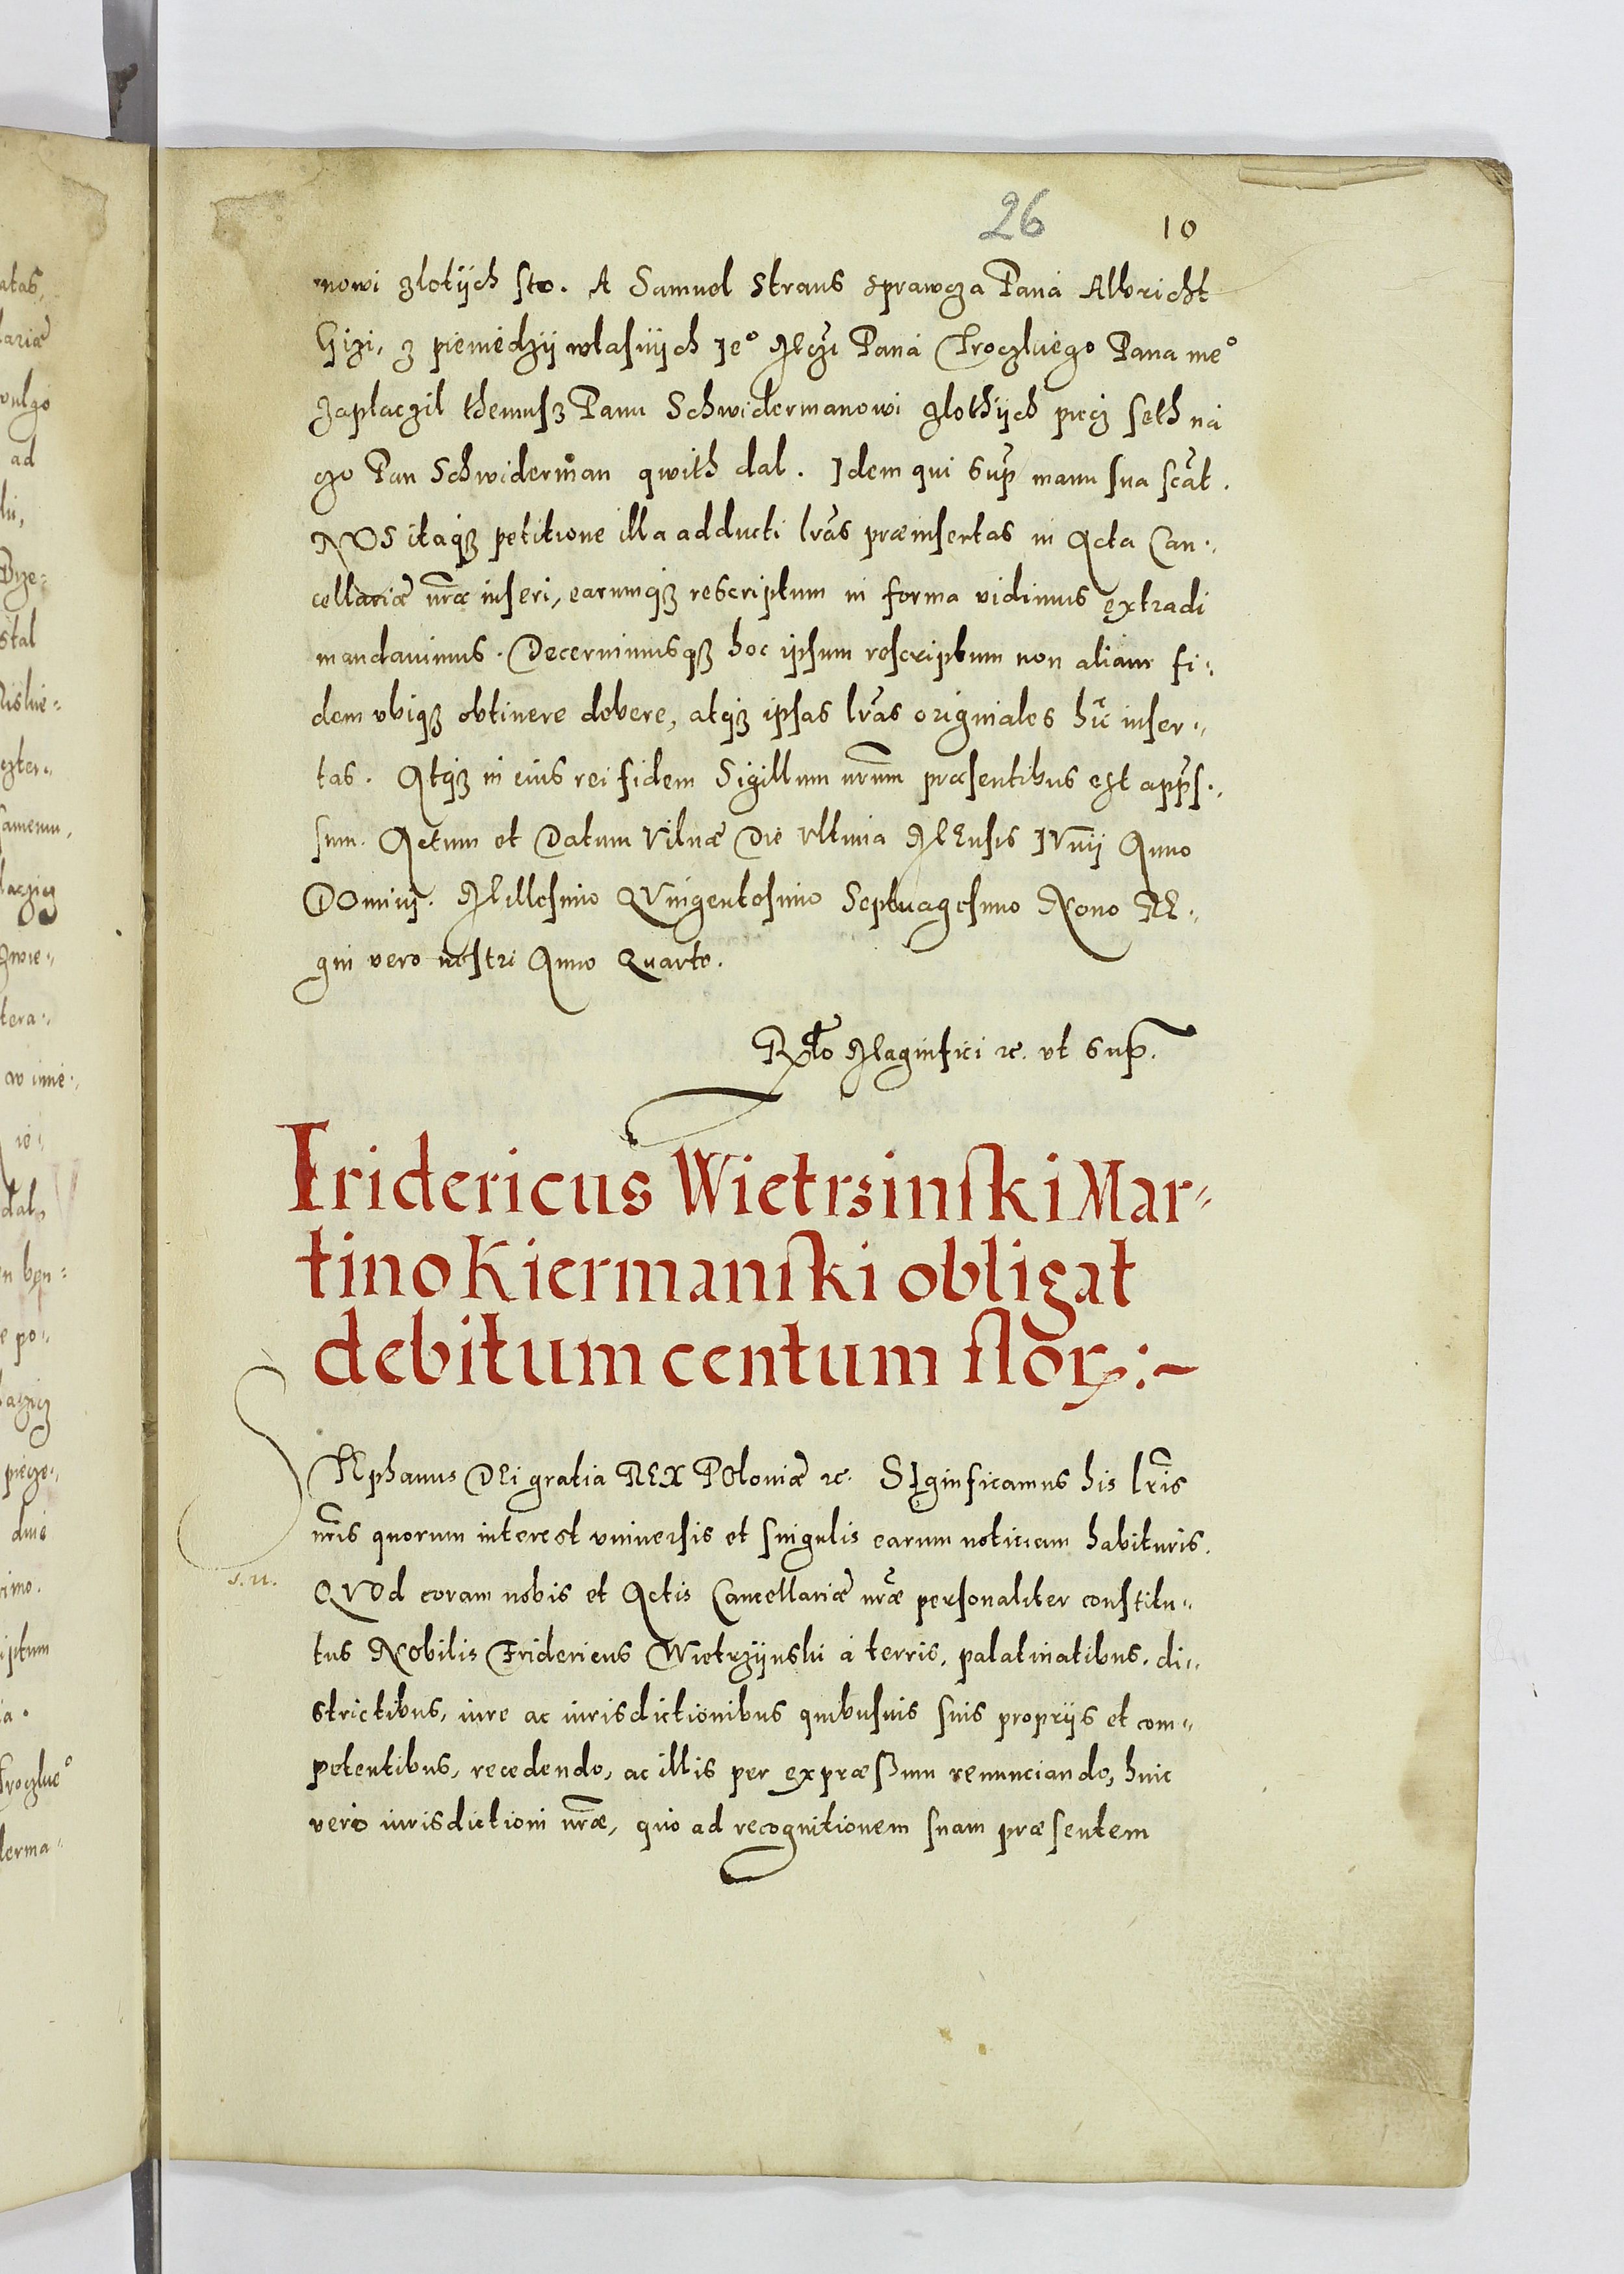 26 10
nowi zlotÿch sto. A Samuel Straus sprawcza Paná Albricht
Gizi, z pieniedzÿ wlasnÿch Je° Mczi Paná Troczkiego Pana me°
zaplaczil themusz Panu Schwidermanowi zlothÿch piecz seth ná
czo Pan Schwiderman qwith dal. Idem qui sup manu sua scãt.
NOS itaqꝫ petitione illa adducti lrãs præinsertas in Acta Can-
cellariæ nrãe inseri, earumqꝫ rescriptum in forma vidimus extradi
mandauimus. Decernimusqꝫ hoc ipsum rescriptum non aliam fi-
dem vbiqꝫ obtinere debere, atqꝫ ipsas lrãs originales hic inser-
tas. Atqꝫ in eius rei fidem Sigillum nrũm præsentibus est appr̃s-
sum. Actum et Datum Vilnæ Die Vltima MEnsis IVnij Anno
DOminj. Millesimo QVingentesimo Septuagesimo Nono RE-
gni vero nostri Anno Quarto.
Rltõ Magnifici ꝛc. vt sup.
Fridericus Wietrsinski Mar-
tino Kiermanski obligat
debitum centum flor:-
STEphanus DEi gratia REX POloniæ ꝛc. SIgnificamus his lrĩs
nrĩs quorum interest vniuersis et singulis earum noticiam habituris.
QVOd coram nobis et Actis Cancellariæ nrãe personaliter constitu-
tus NObilis Fridericus Wietrzÿnski à terris, palatinatibus, di-
strictibus, iure ac iurisdictionibus quibusuis suis proprijs et com-
petentibus, recedendo, ac illis per expræssum renunciando, huic
vero iurisdictioni nrãe, quo ad recognitionem suam præsentem